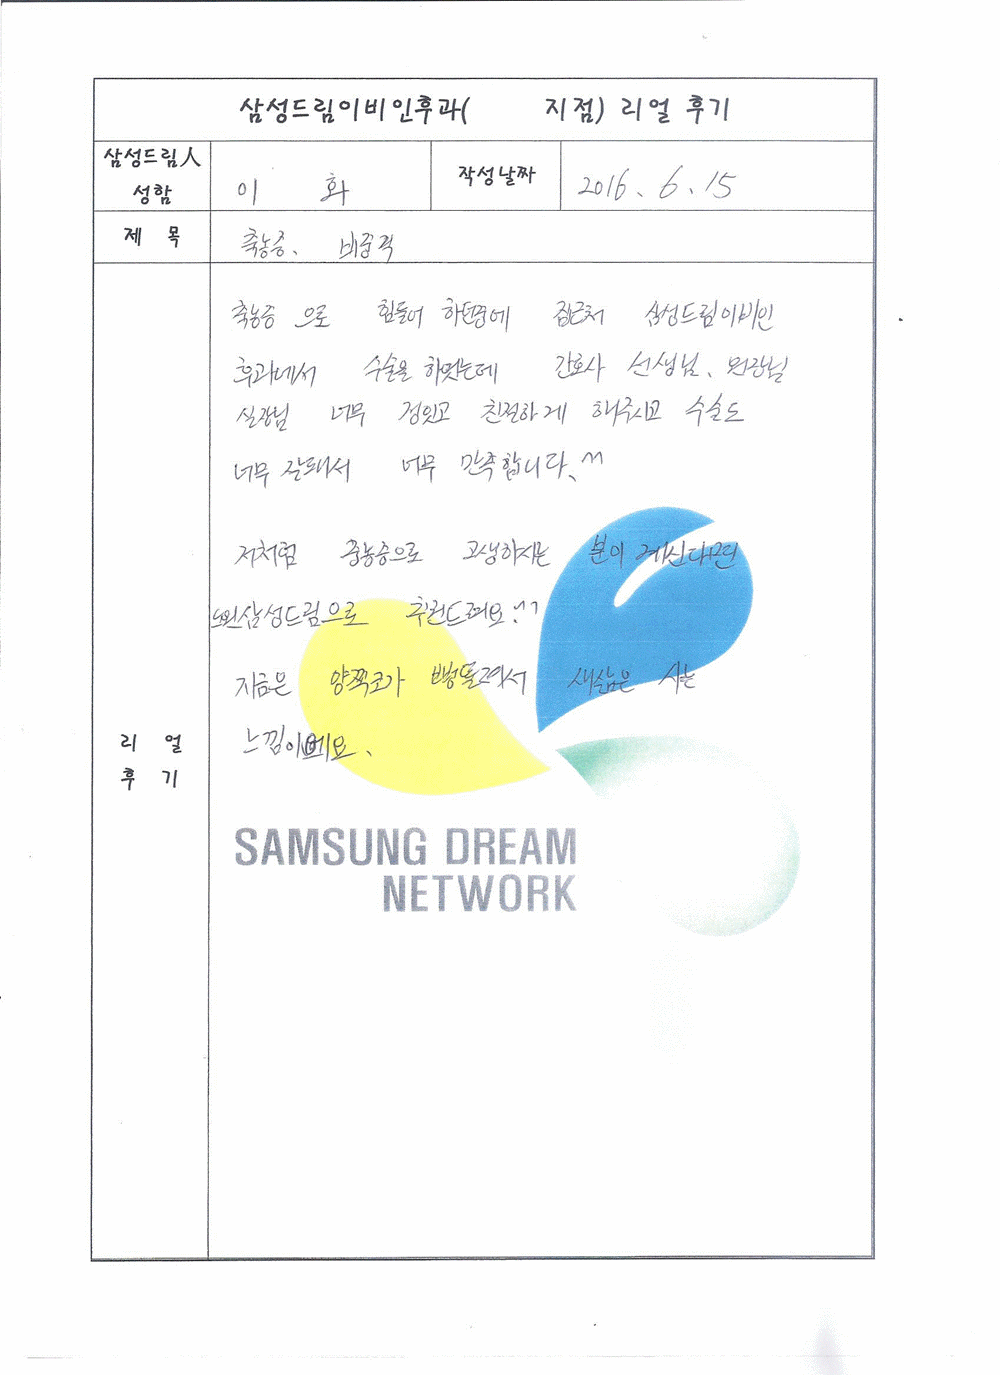 삼성드림이비인후과(      지점) 리얼 후기
삼성드림人 성함
이   화
작성날짜
2016. 6. 15
제 목
축농증, 비중격
축농증 으로 힘들어 하던중에 집근처 삼성드림이비인
후과에서 수술을 하였는데 간호사 선생님, 원장님
실장님 너무 정있고 친절하게 해주시고 수술도
너무 잘돼서 너무 만족합니다. ^^
저처럼 축농증으로 고생하시는 분이 계신다면
삼성드림으로 추천드려요^^
지금은 양쪽코가 뻥뚤려서 새삶은 사는
느낌이예요.
리 얼
후 기
SAMSUNG DREAM
NETWORK